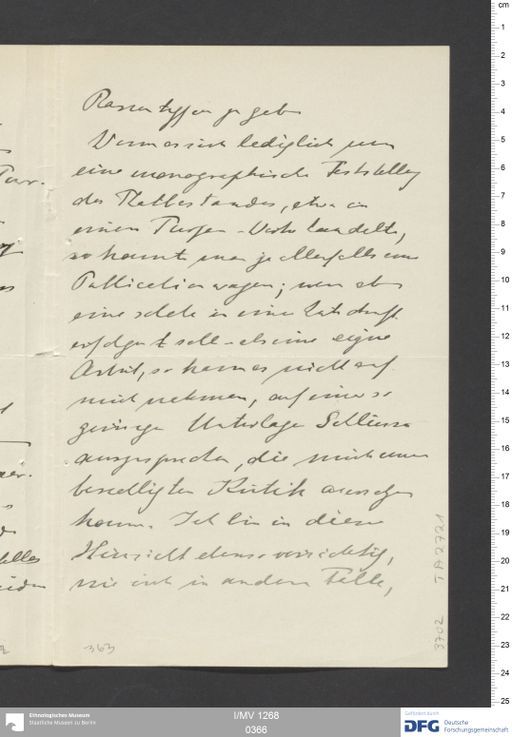 Rassentypen zu geben
Wenn es sich lediglich um
eine monographische Feststellung
des Thatbestandes, etwa in
einem Turfan-Werke handelte,
so könnte man ja allenfalls eine
Publication wagen; wenn aber
eine solche in einer Zeitschrift
erfolgen soll als eine eigne
Arbeit, so kann es nicht auf
mich nehmen, auf einer so
geringen Unterlage Schlüsse
auszusprechen, die mich einer
berechtigten Kritik aussetzen
kann. Ich bin in dieser
Hinsicht ebenso vorsichtig,
wie ich in andern Fällen,
363
3702 TA 2721
Ethnologisches Museum
Staatliche Museen zu Berlin
I/MV 1268
0366
Gefördert durch
DFG Deutsche
Forschungsgemeinschaft
cm
1
2
3
4
5
6
7
8
9
10
11
12
13
14
15
16
17
18
19
20
21
22
23
24
25